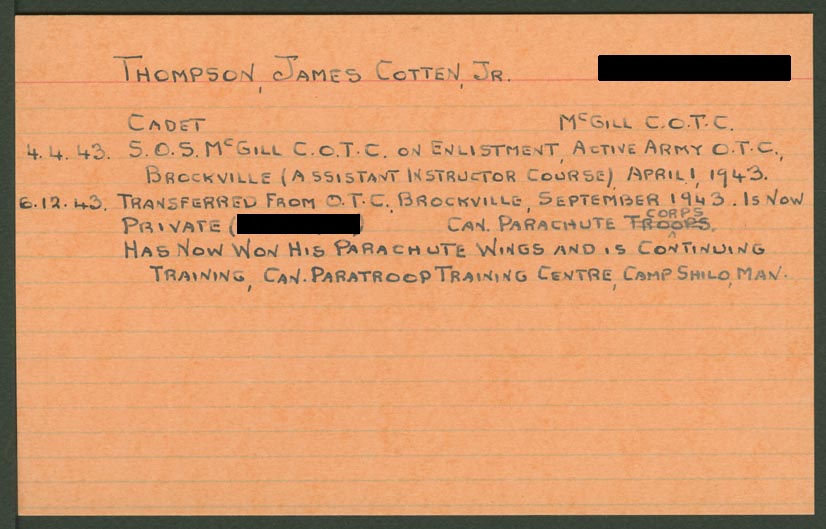 Thompson, James Cotten, Jr.
Cadet McGill C.O.T.C.
4.4.43. S.O.S. McGill C.O.T.C. on Enlistment, Active Army O.T.C.,
Brockville (Assistant Instructor Course) April 1, 1943.
6.12.43. Transferred From O.T.C. Brockville, September 1943. Is Now
Private ( ) Can. Parachute Troops Corps.
Has Now Won His Parachute Wings and is Continuing
Training, Can. Paratroop Training Centre, Camp Shilo, Man.